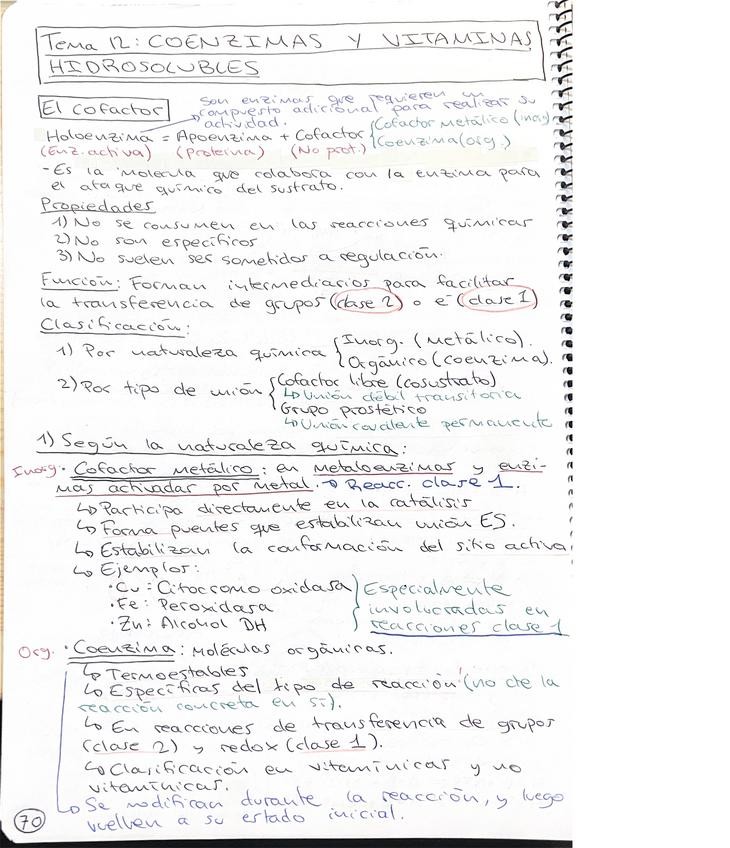 Tema 12: COENZIMAS Y VITAMINAS
HIDROSOLUBLES
El cofactor
Son enzimas que requieren un
compuesto adicional para realizar su
actividad.
Holoenzima = Apoenzima + Cofactor { Cofactor metálico (inorg)
Coenzima (org.)
(Enz. activa) (Proteína) (No prot.)
- Es la molecula que colabora con la enzima para
el ataque químico del sustrato.
Propiedades
1) No se consumen en las reacciones químicas
2) No son específicos
3) No suelen ser sometidos a regulación.
Función: Forman intermediarios para facilitar
la transferencia de grupos (clase 2) o e- (clase 1)
Clasificación:
1) Por naturaleza química { Inorg. (metálico).
Orgánico (coenzima).
2) Por tipo de unión { Cofactor libre (cosustrato)
↳ Unión débil transitoria
Grupo prostético
↳ Unión covalente permanente
1) Según la naturaleza química:
Inorg. · Cofactor metálico: en metaloenzimas y enzi-
mas activadas por metal. → Reacc. clase 1.
↳ Participa directamente en la catálisis
↳ Forma puentes que estabilizan unión ES.
↳ Estabilizan la conformación del sitio activo
↳ Ejemplos:
· Cu: Citocromo oxidasa
· Fe: Peroxidasa
· Zn: Alcohol DH
Especialmente
involucradas en
reacciones clase 1
Org. · Coenzima: Moléculas orgánicas.
↳ Termoestables
↳ Específicas del tipo de reacción (no de la
reacción concreta en sí).
↳ En reacciones de transferencia de grupos
(clase 2) y redox (clase 1).
↳ Clasificación en vitamínicas y no
vitamínicas.
↳ Se modifican durante la reacción, y luego
vuelven a su estado inicial.
70